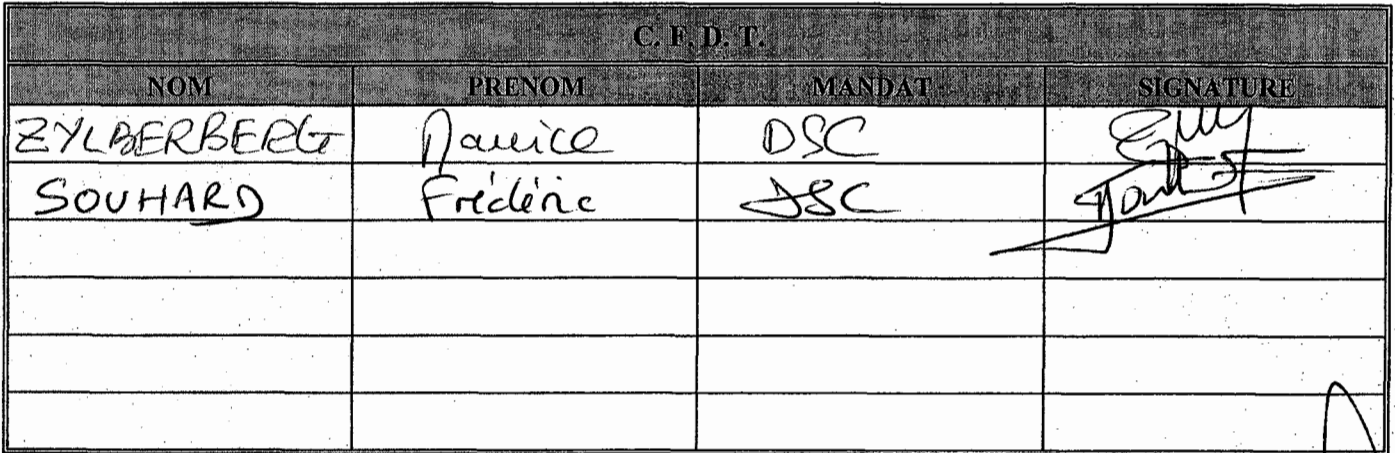 C. F. D. T.
NOM PRENOM MANDAT SIGNATURE
ZYLBERBERG Maurice DSC
SOUHARD Frédéric DSC